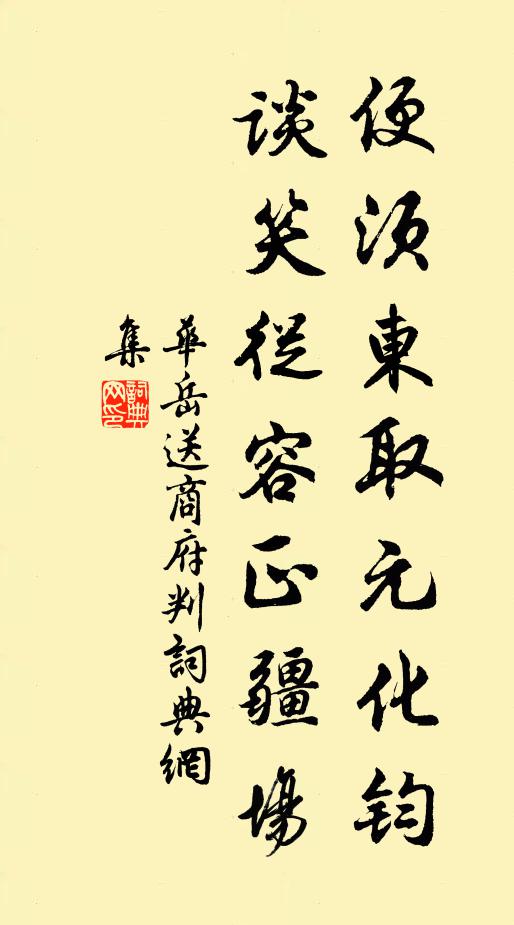 便須東取元化鈞
談笑從容正疆場
華岳送商府判詞典網
集
詞典
网印